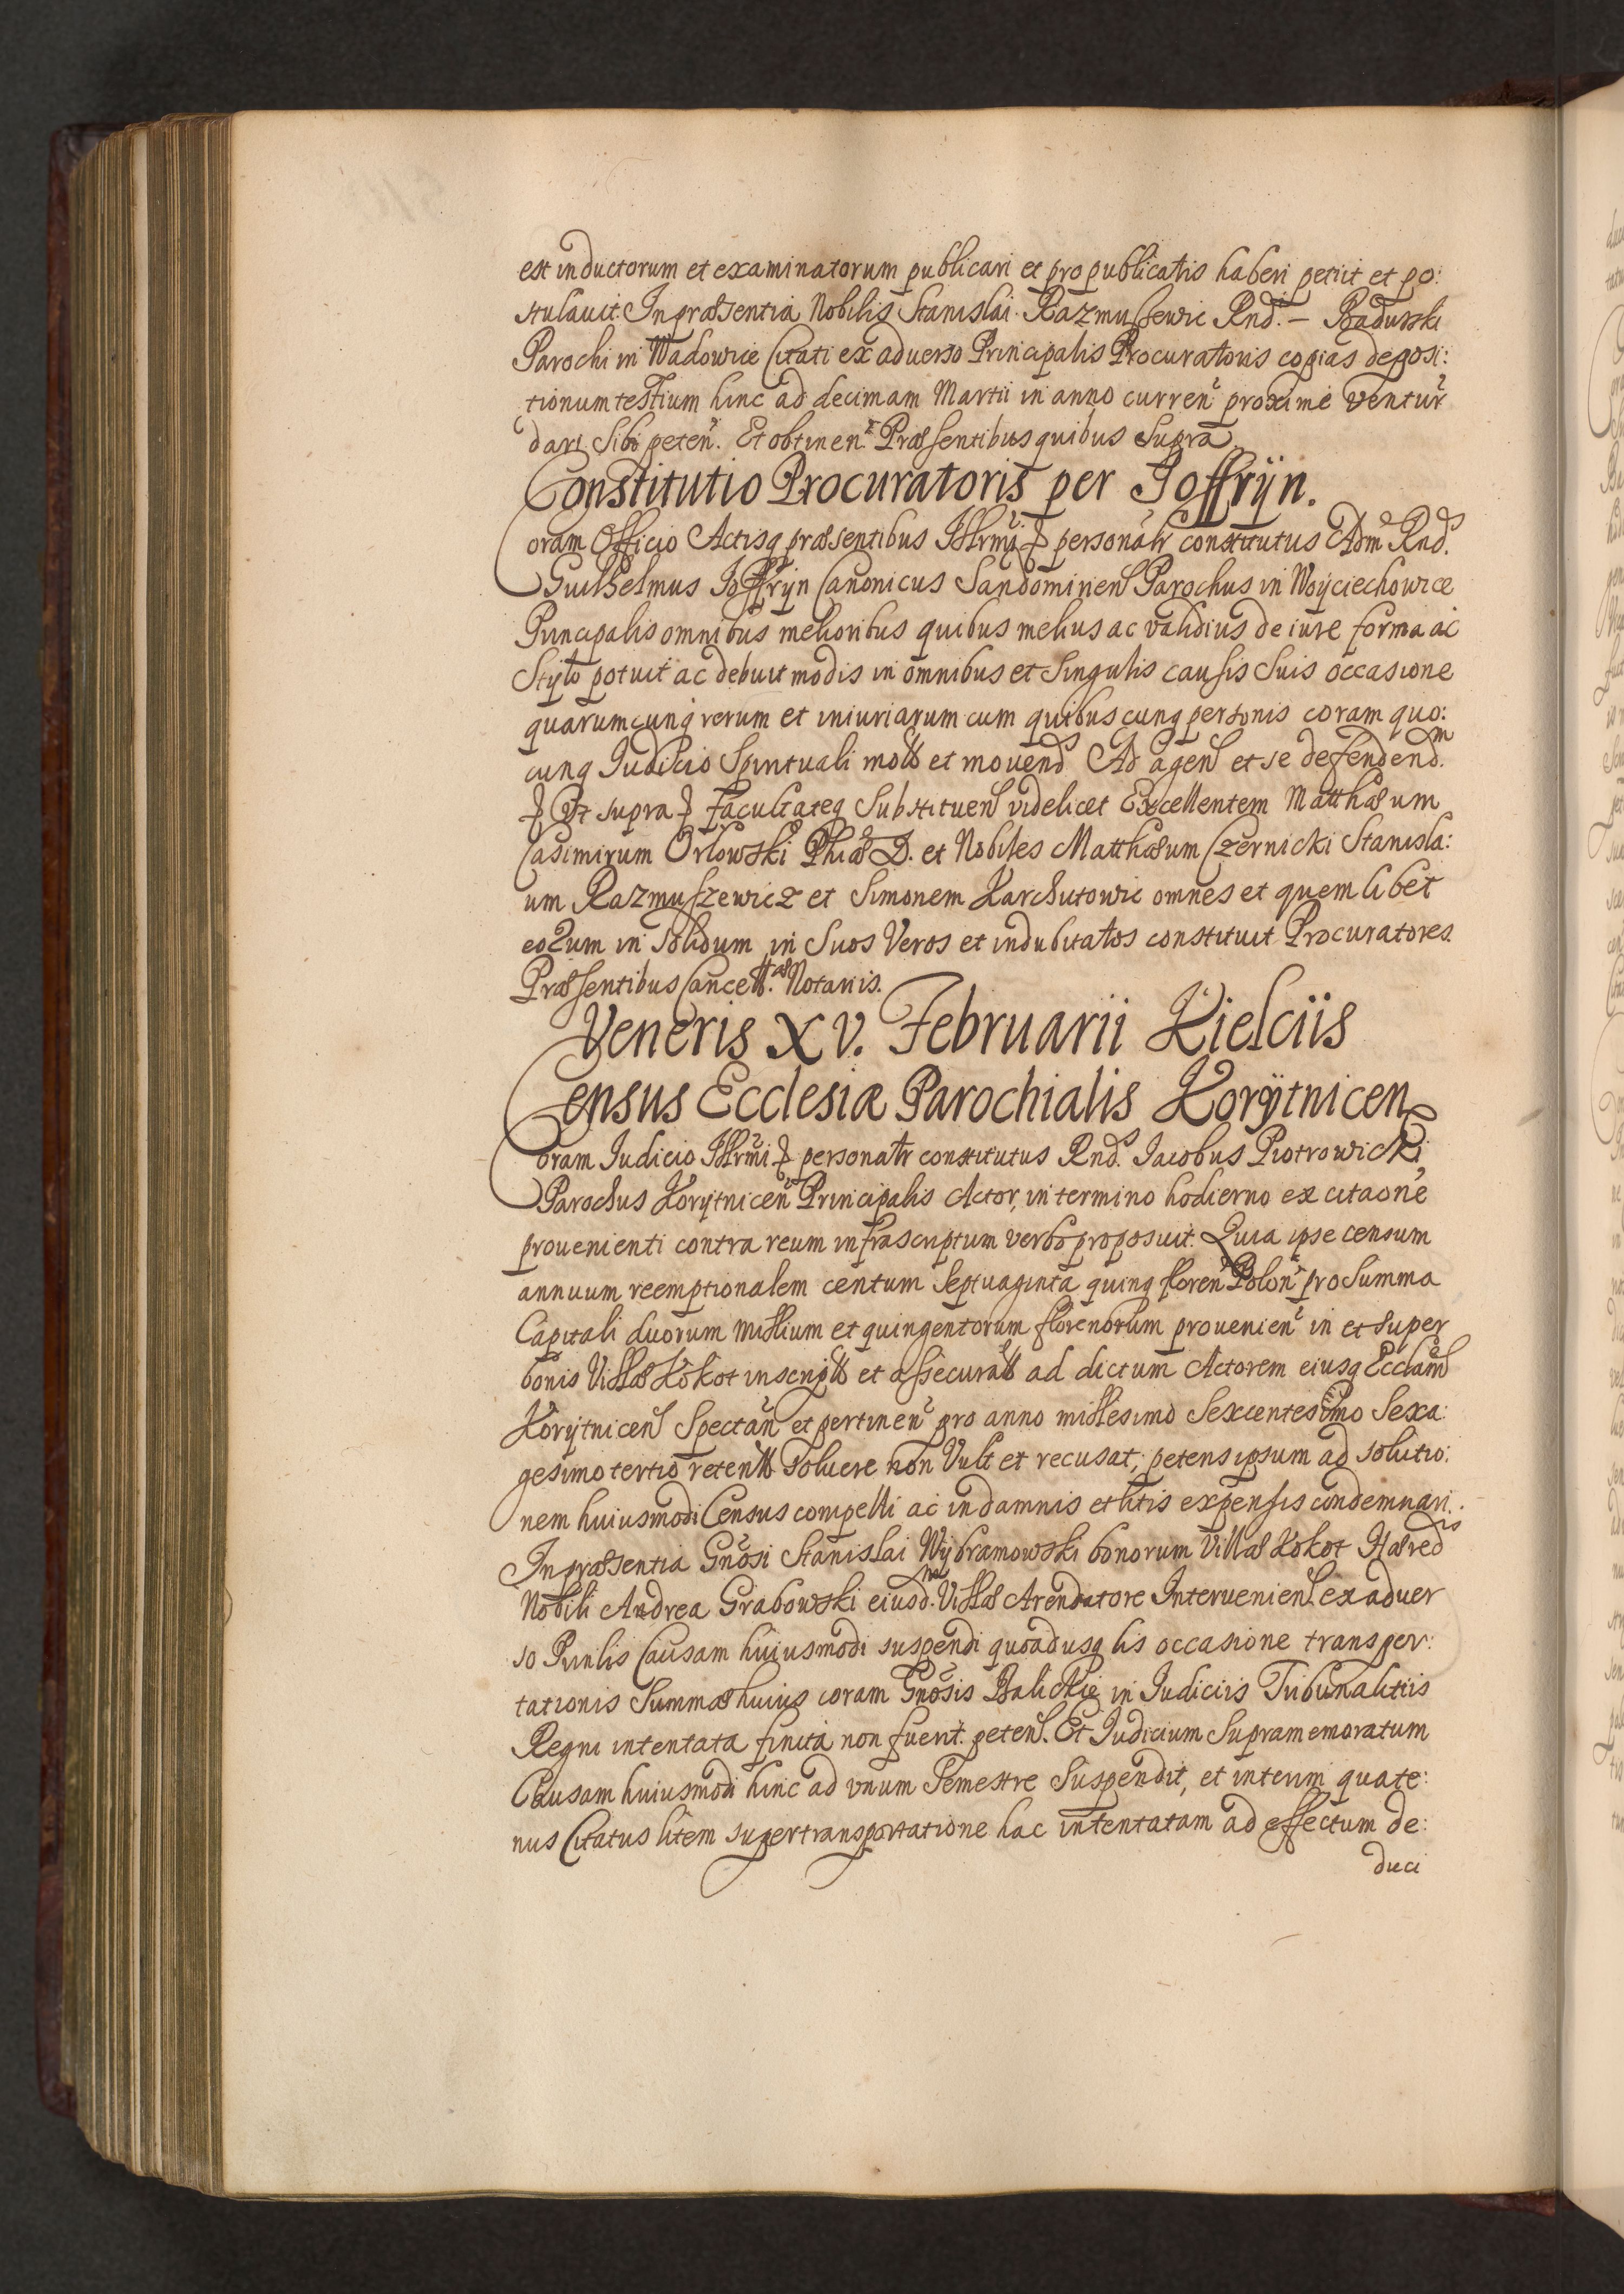 est inductorum et examinatorum publicari et pro publicatis haberi petiit et po:
stulavit. In præsentia Nobilis Stanislai Razmussewic Rnd.i – Radunski
Parochi in Wadowice Citati ex adverso Principalis Procuratoris copias deposi:
tionum testium hinc ad decimam Martii in anno curren̄ proximè ventur̄
dari Sibi peten̄. Et obtinen̄. Præsentibus quibus Supra.
Constitutio Procuratoris per Joffrÿn.
Coram Officio Actisq præsentibus Illrmi ꝑ personalr constitutus Adm Rnd.s
Guilhelmus Joffrÿn Canonicus Sandomirien Parochus in Woÿciechowice
Principalis omnibus melioribus quibus melius ac validius de iure forma ac
Stÿlo potuit ac debuit modis in omnibus et Singulis causis Suis occasione
quarumcunq rerum et iniuriarum cum quibuscunq personis coram quo:
cunq Judicio Spirituali motis et movend Ad agen et se defendend.m
Ut supra Facultateq Substituen videlicet Excellentem Matthæum
Casimirum Orlowski Phiæ D. et Nobiles Matthæum Czernicki Stanisla:
um Razmuszewicz et Simonem Karchutowic omnes et quemlibet
eorum in Solidum in Suos Veros et indubitatos constituit Procuratores.
Præsentibus Cancell. Notariis.
Veneris XV. Februarii Kielciis
Census Ecclesiæ Parochialis Korÿtnicen
Coram Judicio Illrmi personalr constitutus Rnd.s Jacobus Piotrowicki
Parochus Korÿtnicen̄ Principalis Actor, in termino hodierno ex citaōne
provenienti contra reum infrascriptum verbo proposuit. Quia ipse censum
annuum reemptionalem centum Septuaginta quinq floren̄ Polon̄ pro Summa
Capitali duorum millium et quingentorum florenorum provenien̄ in et super
bonis Villæ Kokot inscriptis et assecuratis ad dictum Actorem eiusq Ecclam
Korÿtnicen Spectan̄ et pertinen̄ pro anno millesimo Sexcentesimo Sexa:
gesimo tertio retent Solvere non Vult et recusat; petens ipsum ad solutio:
nem huiusmodi Census compelli ac in damnis et litis expensis condemnari.
In præsentia Gnōsi Stanislai Wÿbramowski bonorum Villæ Kokot Hæred.is
Nobili Andrea Grabowski eiusd.m Villæ Arendatore Intervenien. ex adver
so Prinlis Causam huiusmodi suspendi quoadusq lis occasione transpor:
tationis Summæ huius coram Gnōsis Balickie in Judiciis Tribunalitiis
Regni intentata finita non fuerit. peten. Et Judicium Supramemoratum
Causam huiusmodi hinc ad unum Semestre Suspendit, et interim quate:
nus Citatus litem super transportatione hac intentatam ad effectum de:
duci